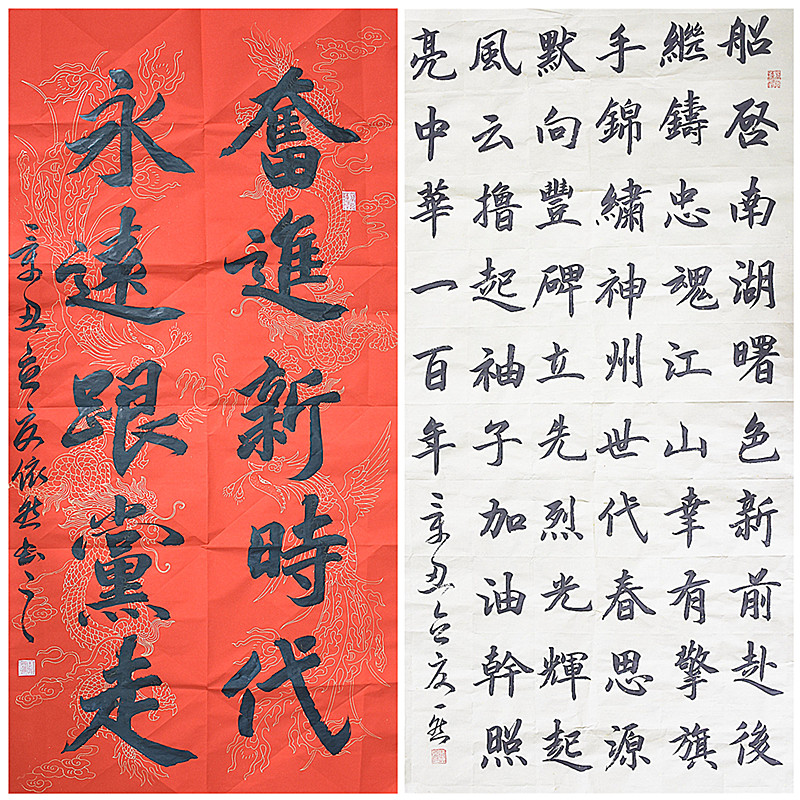 奮進新時代
永遠跟黨走
辛丑立夏依然书之
船啓南湖曙色新前赴後
繼鑄忠魂江山幸有擎旗
手錦繡神州世代春思源
默向豐碑立先烈光輝起
風云擼起袖子加油幹照
亮中華一百年
辛丑立夏一然